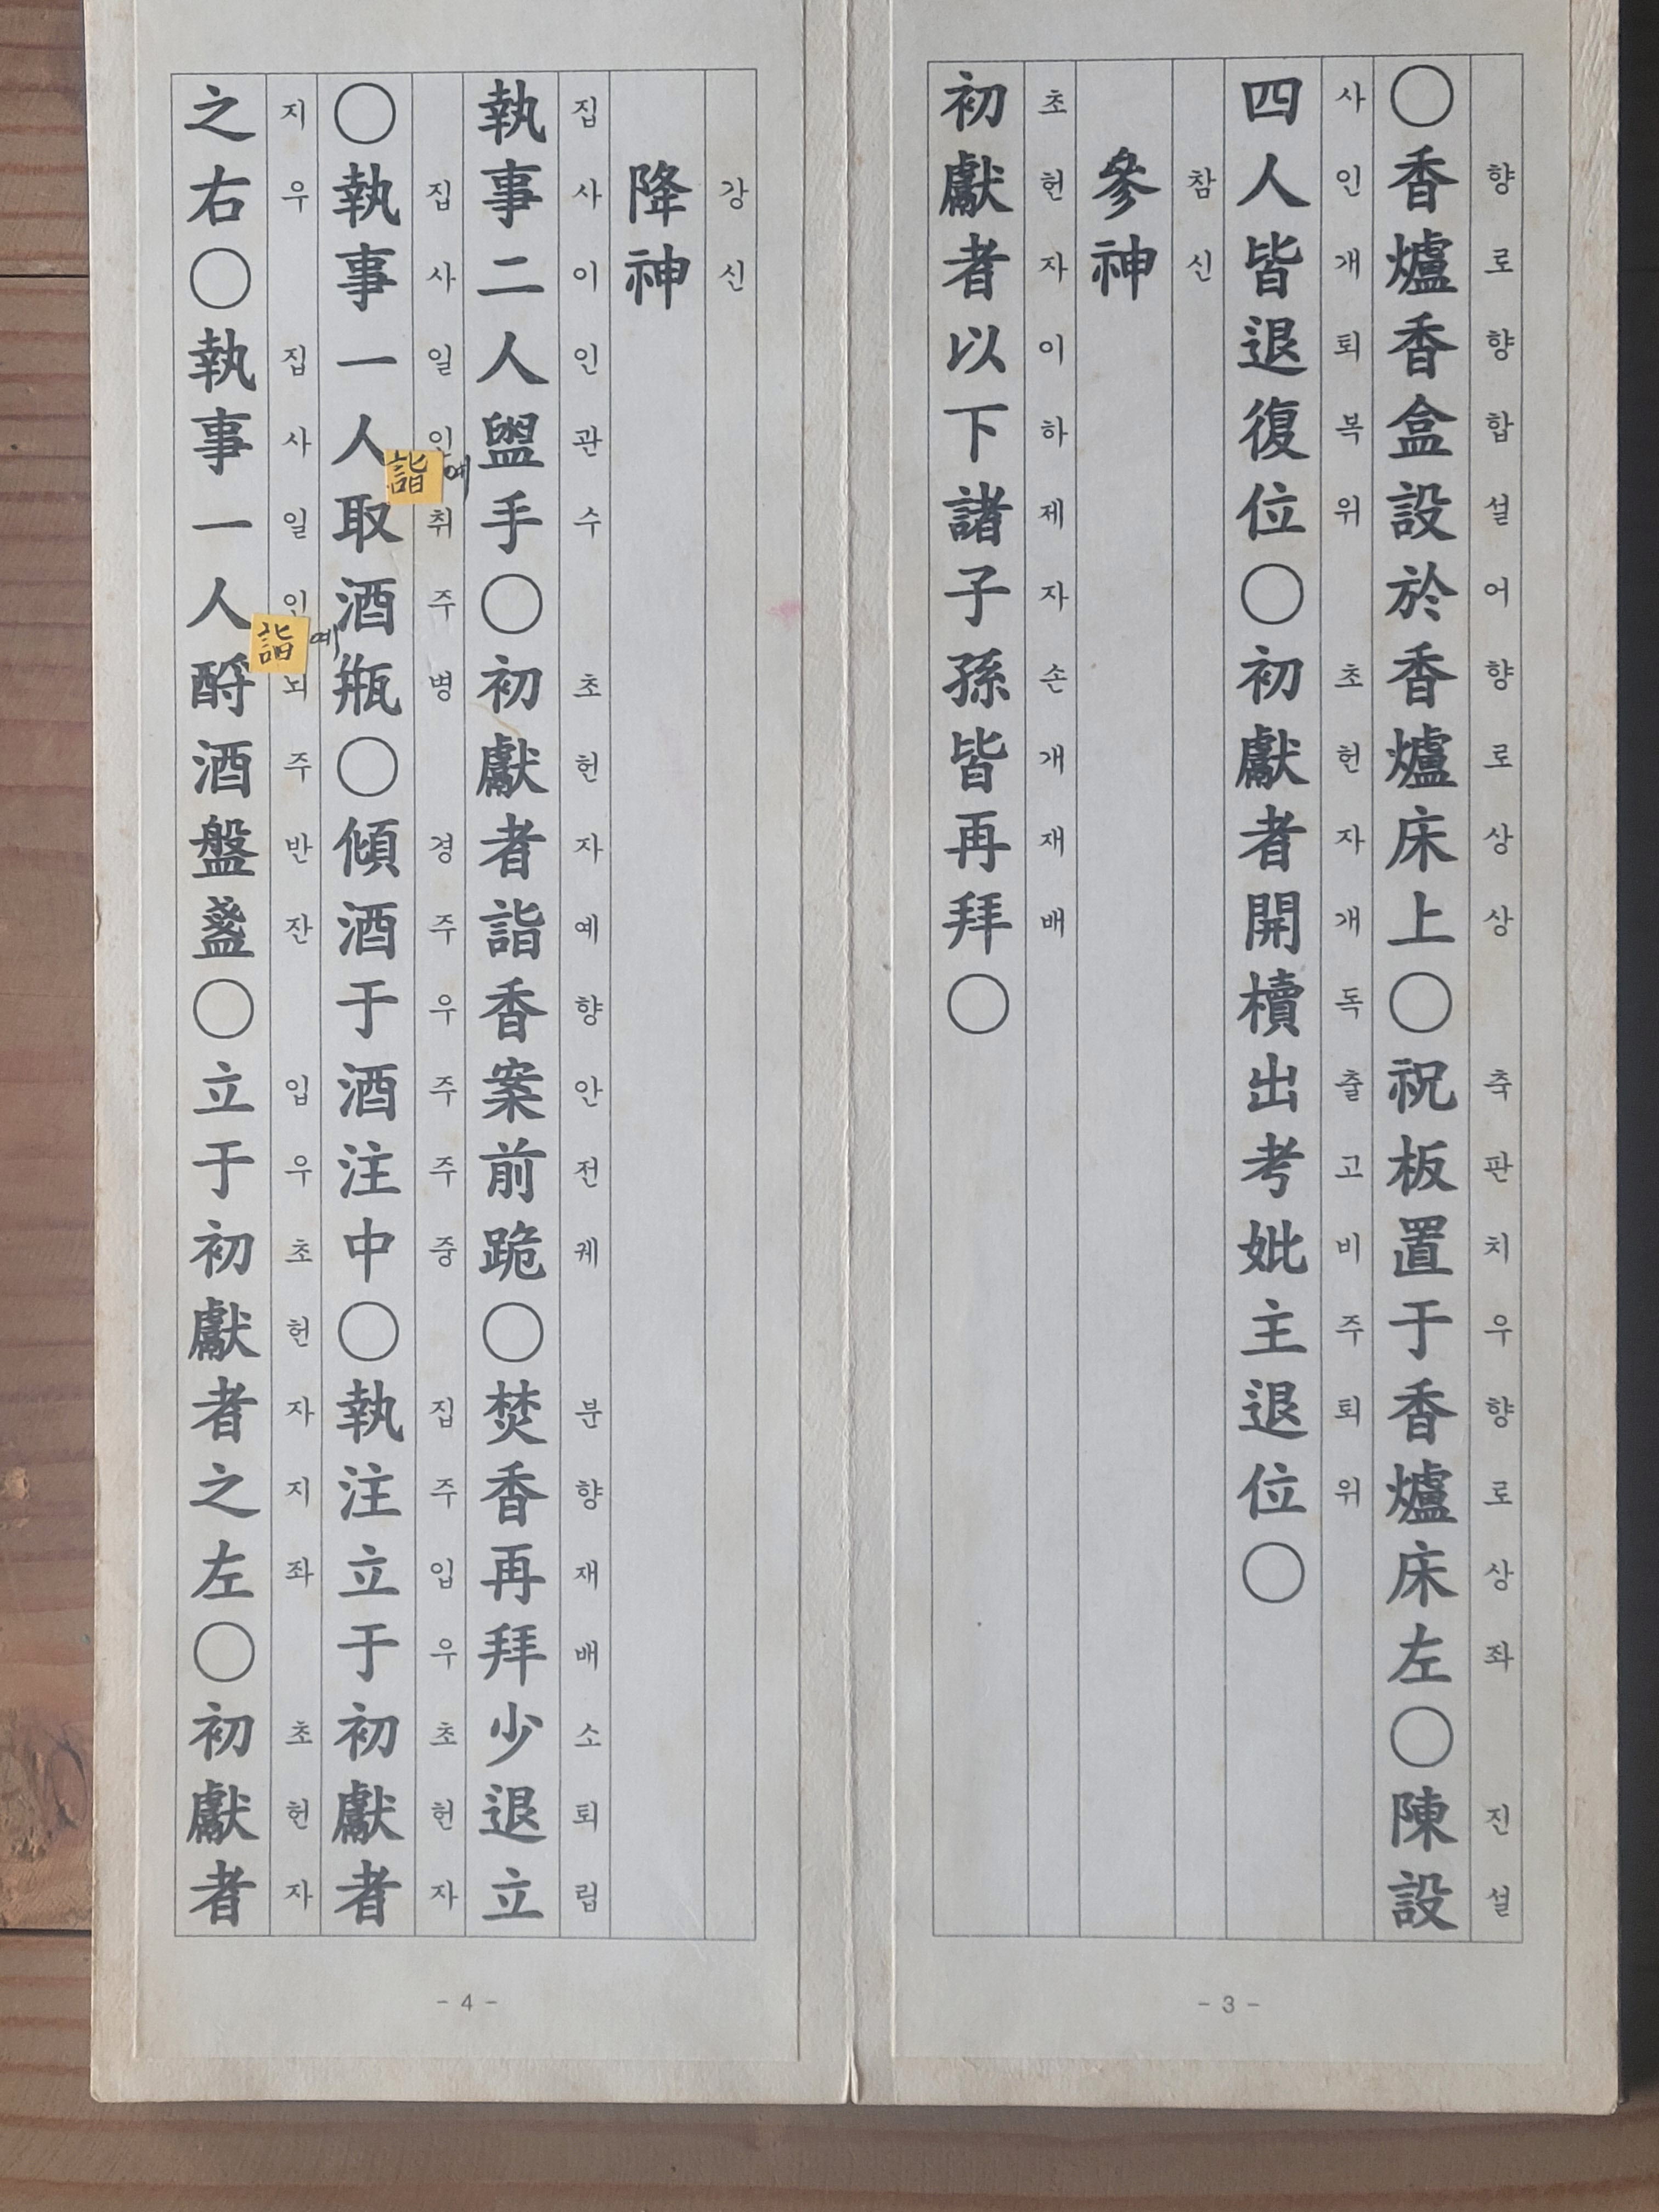 ○香爐香盒設於香爐床上○祝板置于香爐床左○陳設
향로향합설어향로상상 축판치우향로상좌 진설
四人皆退復位○初獻者開櫝出考妣主退位○
사인개퇴복위 초헌자개독출고비주퇴위
參神
참신
初獻者以下諸子孫皆再拜○
초헌자이하제자손개재배
- 3 -
降神
강신
執事二人盥手○初獻者詣香案前跪○焚香再拜少退立
집사이인관수 초헌자예향안전궤 분향재배소퇴립
○執事一人取酒瓶○傾酒于酒注中○執注立于初獻者
집사일인취주병 경주우주주중 집주입우초헌자
詣예
之右○執事一人酹酒盤盞○立于初獻者之左○初獻者
지우 집사일인뇌주반잔 입우초헌자지좌 초헌자
詣예
- 4 -